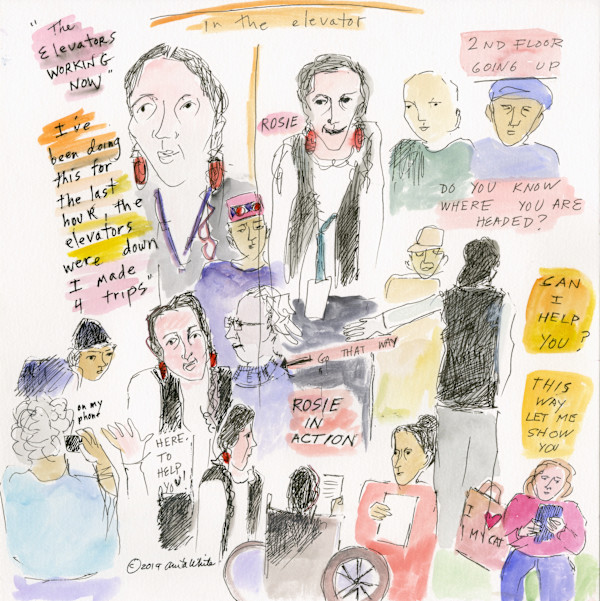 In the elevator
"The
Elevators
WORKING
NOW"
I've
been doing
this for
the last
hour, the
elevators
were down
I made
4 trips"
ROSIE
2ND FLOOR
GOING UP
DO YOU KNOW
WHERE YOU ARE
HEADED?
CAN
I
HELP
YOU?
GO THAT WAY
THIS
WAY
LET ME
SHOW
YOU
on my
phone
ROSIE
IN
ACTION
HERE
TO
HELP
YOU!
I ♥
MY CAT
©2019 Anita White